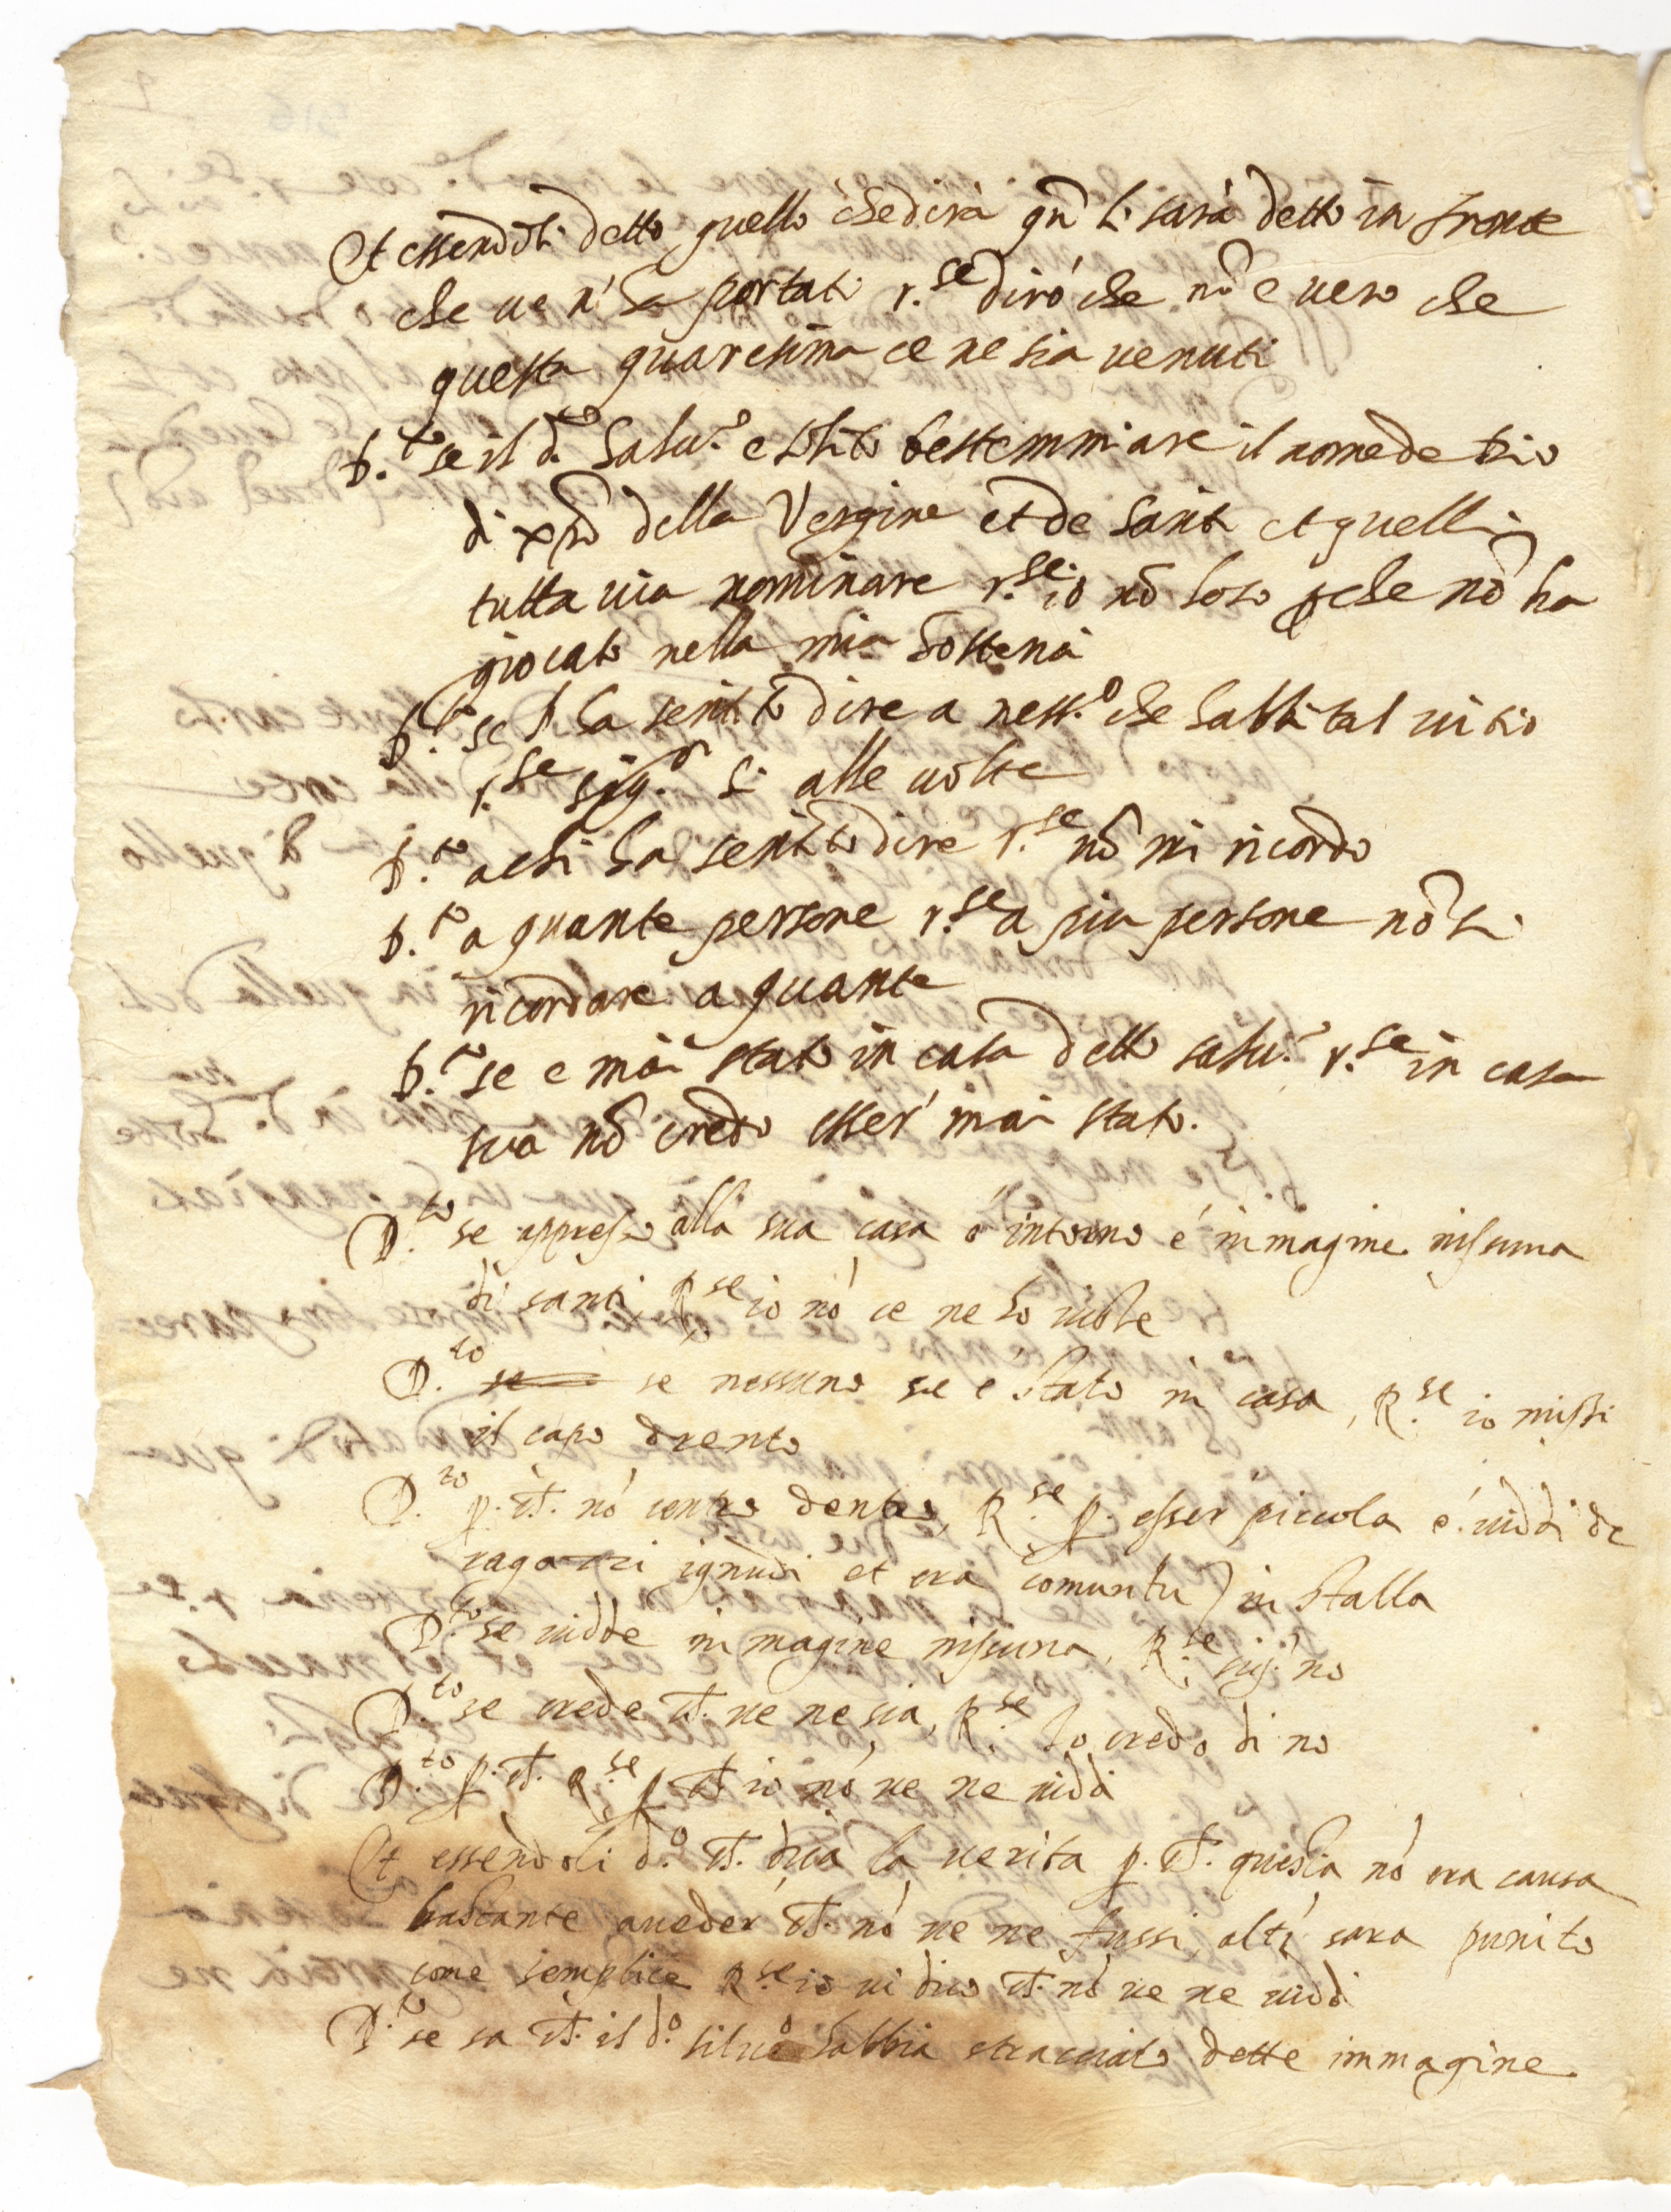 Et essendoli detto quello che dirà qñ li sarà detto in fronte
che ve n'ha portati r.se dirò che nõ è vero che
questa quaresima ce ne sia venuti
D.to se il d.o Salv.e e solito bestemmiare il nome de Dio
di xpõ della Vergine et de santi et quelli
tutta via nominare r.se io nõ lo so pche nõ ha
giocato nella mia hosteria
D.to se l'ha sentito dire a ness.o che habbi tal vitio
r.se sig.r si alle volte
D.to a chi ha sentito dire r.se nõ mi ricordo
D.to a quante persone r.se a piu persone nõ si
ricordare a quante
D.to se e mai stato in casa detto salv.e r.se in casa
sua nõ credo esser' mai stato.
D.to se appresso alla sua casa o intorno é immagine nissuna
di santi, R.se io nõ ce ne ho viste
D.to se se nessuno ne é stato in casa, R.se io missi
il capo drento
D.to p. ch. nõ entro dento, R.se p. esser piccola é viddi de
ragazzi ignudi et era in stalla
D.to se vidde immagine nissuna, R.se sig. no
D.to se crede ch. ve ne sia, R.se Io credo di no
D.to p. ch. R.se p ch io nõ ve ne viddi
Et essendoli d.o ch. dica la verita p. ch. questa nõ era causa
bastante a veder' ch. nõ ve ne fussi, altr' sara punito
come semplice R.se io vi dico ch. nõ ve ne viddi
D.to se sa ch. il d.o habbia stracciato dette immagine